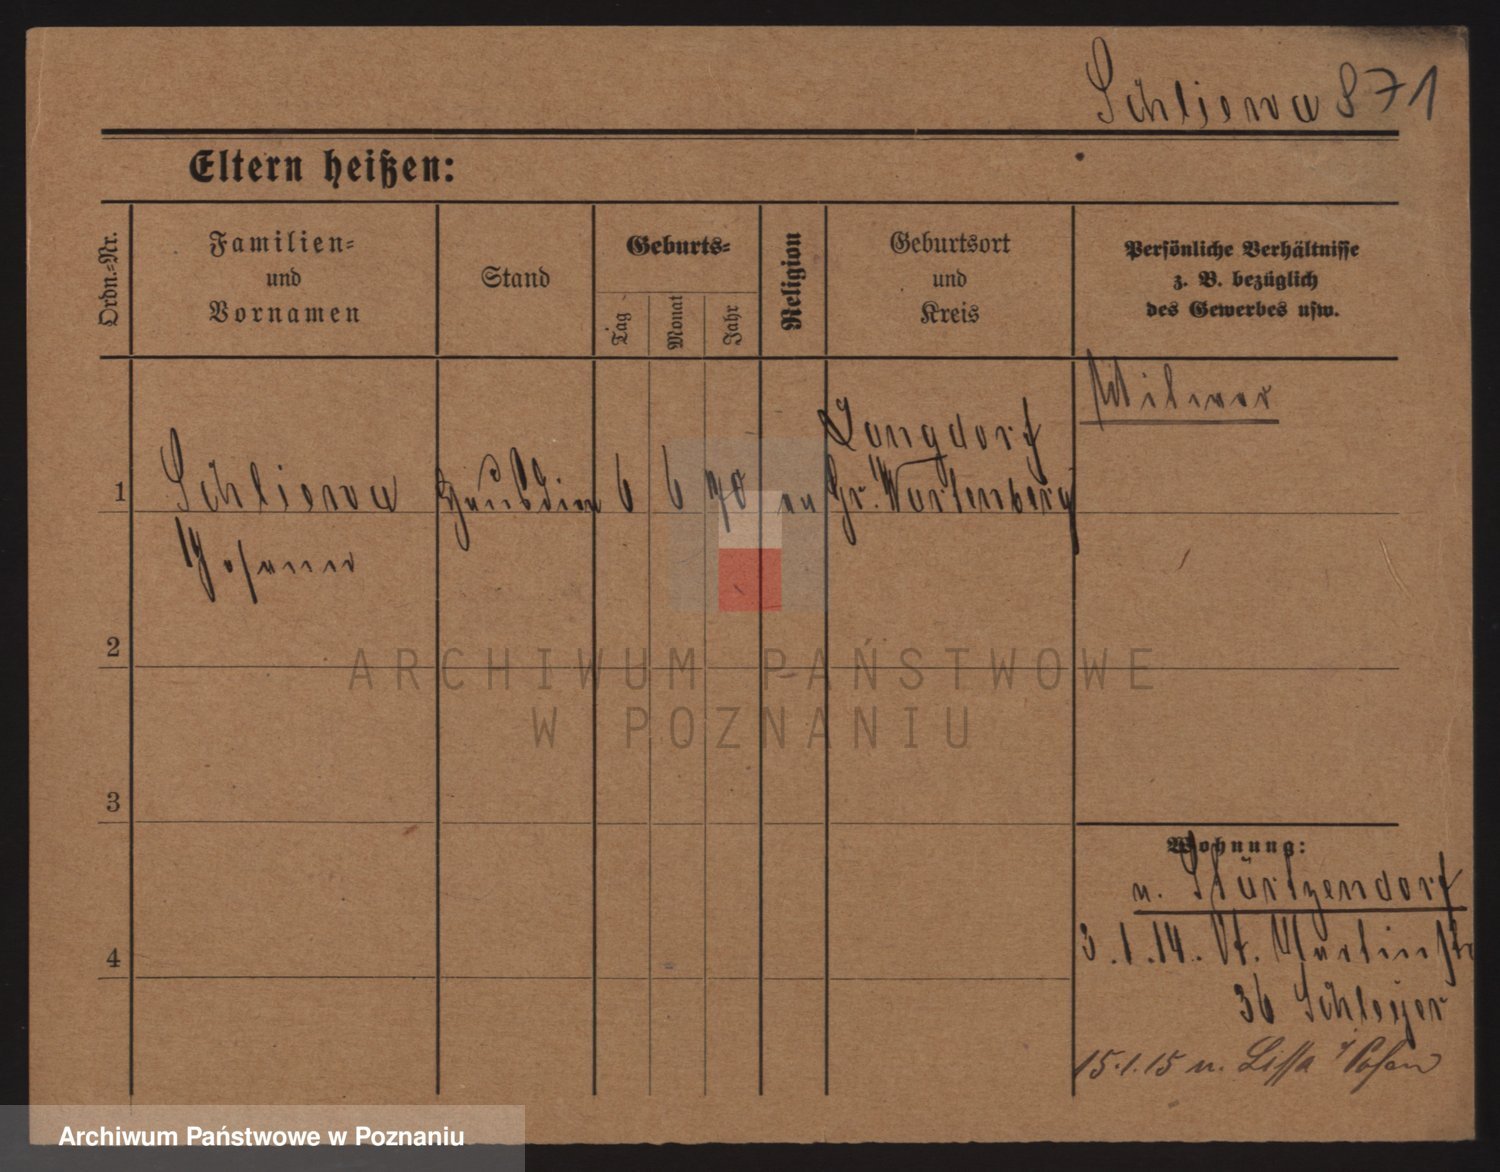 Schliewa 871
Eltern heißen:
Ordn.-Nr.
Familien-
und
Vornamen
Stand
Geburts-
Tag
Monat
Jahr
Religion
Geburtsort
und
Kreis
Persönliche Verhältnisse
z. B. bezüglich
des Gewerbes usw.
Langdorf
1 Schliewa Hausdien 6 6 90 Gr. Wartenberg
2
3
4
Wohnung:
n. Stürtzendorf
3.1.14. St. Martinstr
36 Schleyer
15.1.15 n. Lissa i/Posen
ARCHIWUM PAŃSTWOWE
W POZNANIU
Archiwum Państwowe w Poznaniu